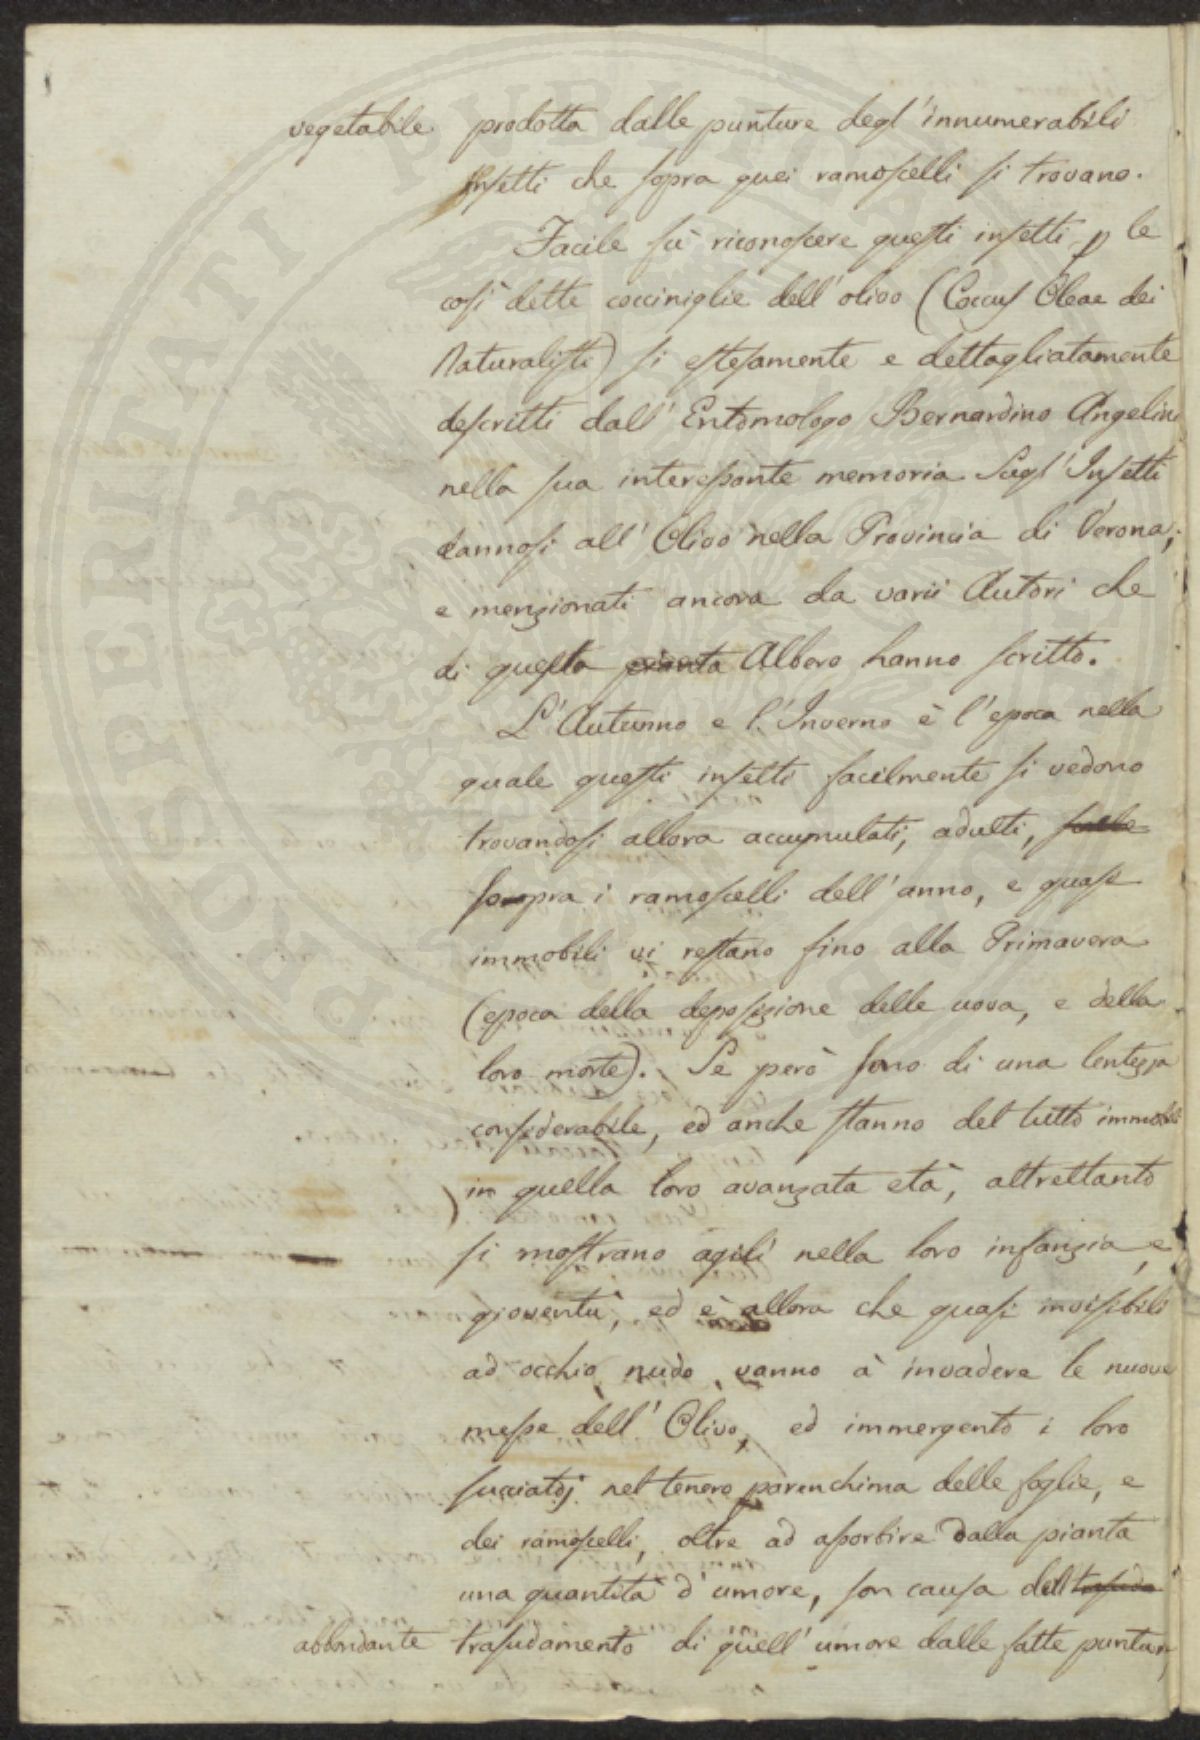 vegetabile prodotta dalle punture degl'innumerabili
Insetti che sopra quei ramoscelli si trovano.
Facile fù riconoscere questi insetti p le
così dette cocciniglie dell'olivo (Coccus Oleae dei
Naturalisti) si estesamente e dettagliatamente
descritti dall'Entomologo Bernardino Angelini
nella sua interessante memoria Sugl'Insetti
dannosi all'Olivo nella Provincia di Verona;
e menzionati ancora da varii Autori che
di questa pianta Albero hanno scritto.
L'Autunno e l'Inverno è l'epoca nella
quale questi insetti facilmente si vedono
trovandosi allora accumulati, adulti, sulle
sopra i ramoscelli dell'anno, e quasi
immobili vi restano fino alla Primavera
(epoca della deposizione delle uova, e della
loro morte). Se però sono di una lentezza
considerabile, ed anche stanno del tutto immobili
in quella loro avanzata età, altrettanto
si mostrano agili nella loro infanzia, e
gioventù, ed è allora che quasi invisibili
ad occhio nudo, vanno à invadere le nuove
messe dell'Olivo, ed immergento i loro
succiatoj nel tenero parenchima delle foglie, e
dei ramoscelli, oltre ad assorbire dalla pianta
una quantità d'umore, son causa dell'
abbondante trasudamento di quell'umore dalle fatte punture,
PROSPERITATI PVBLICAE